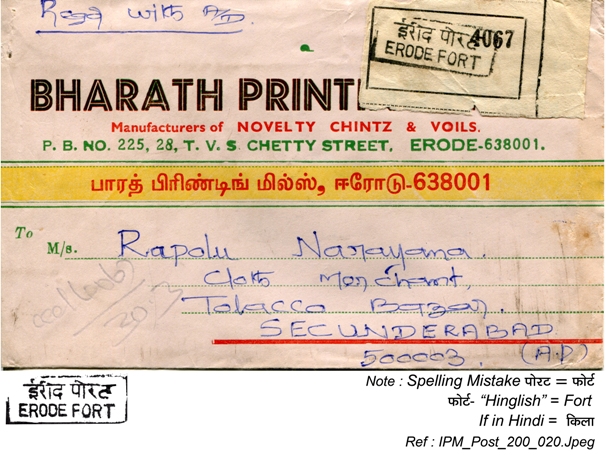 Regd with A/D.
ईरोद पोरट 4067
ERODE FORT
BHARATH PRINT
Manufacturers of NOVELTY CHINTZ & VOILS.
P. B. NO. 225, 28, T. V. S. CHETTY STREET, ERODE-638001.
பாரத் பிரிண்டிங் மில்ஸ், ஈரோடு-638001
To
M/s. Rapolu Narayana
Cloth Merchant,
Tobacco Bazar.
SECUNDERABAD
500003. (A.P)
ईरोद पोरट
ERODE FORT
Note : Spelling Mistake पोरट = फोर्ट
फोर्ट- “Hinglish” = Fort
If in Hindi = किला
Ref : IPM_Post_200_020.Jpeg